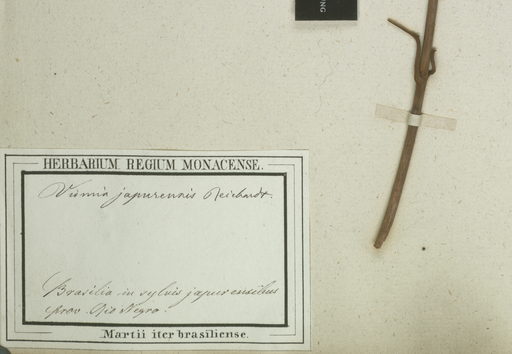 NG
HERBARIUM REGIUM MONACENSE.
Vismia japurensis Reichardt.
Brasilia in sylvis japurensibus
prov. Rio Negro.
Martii iter brasiliense.